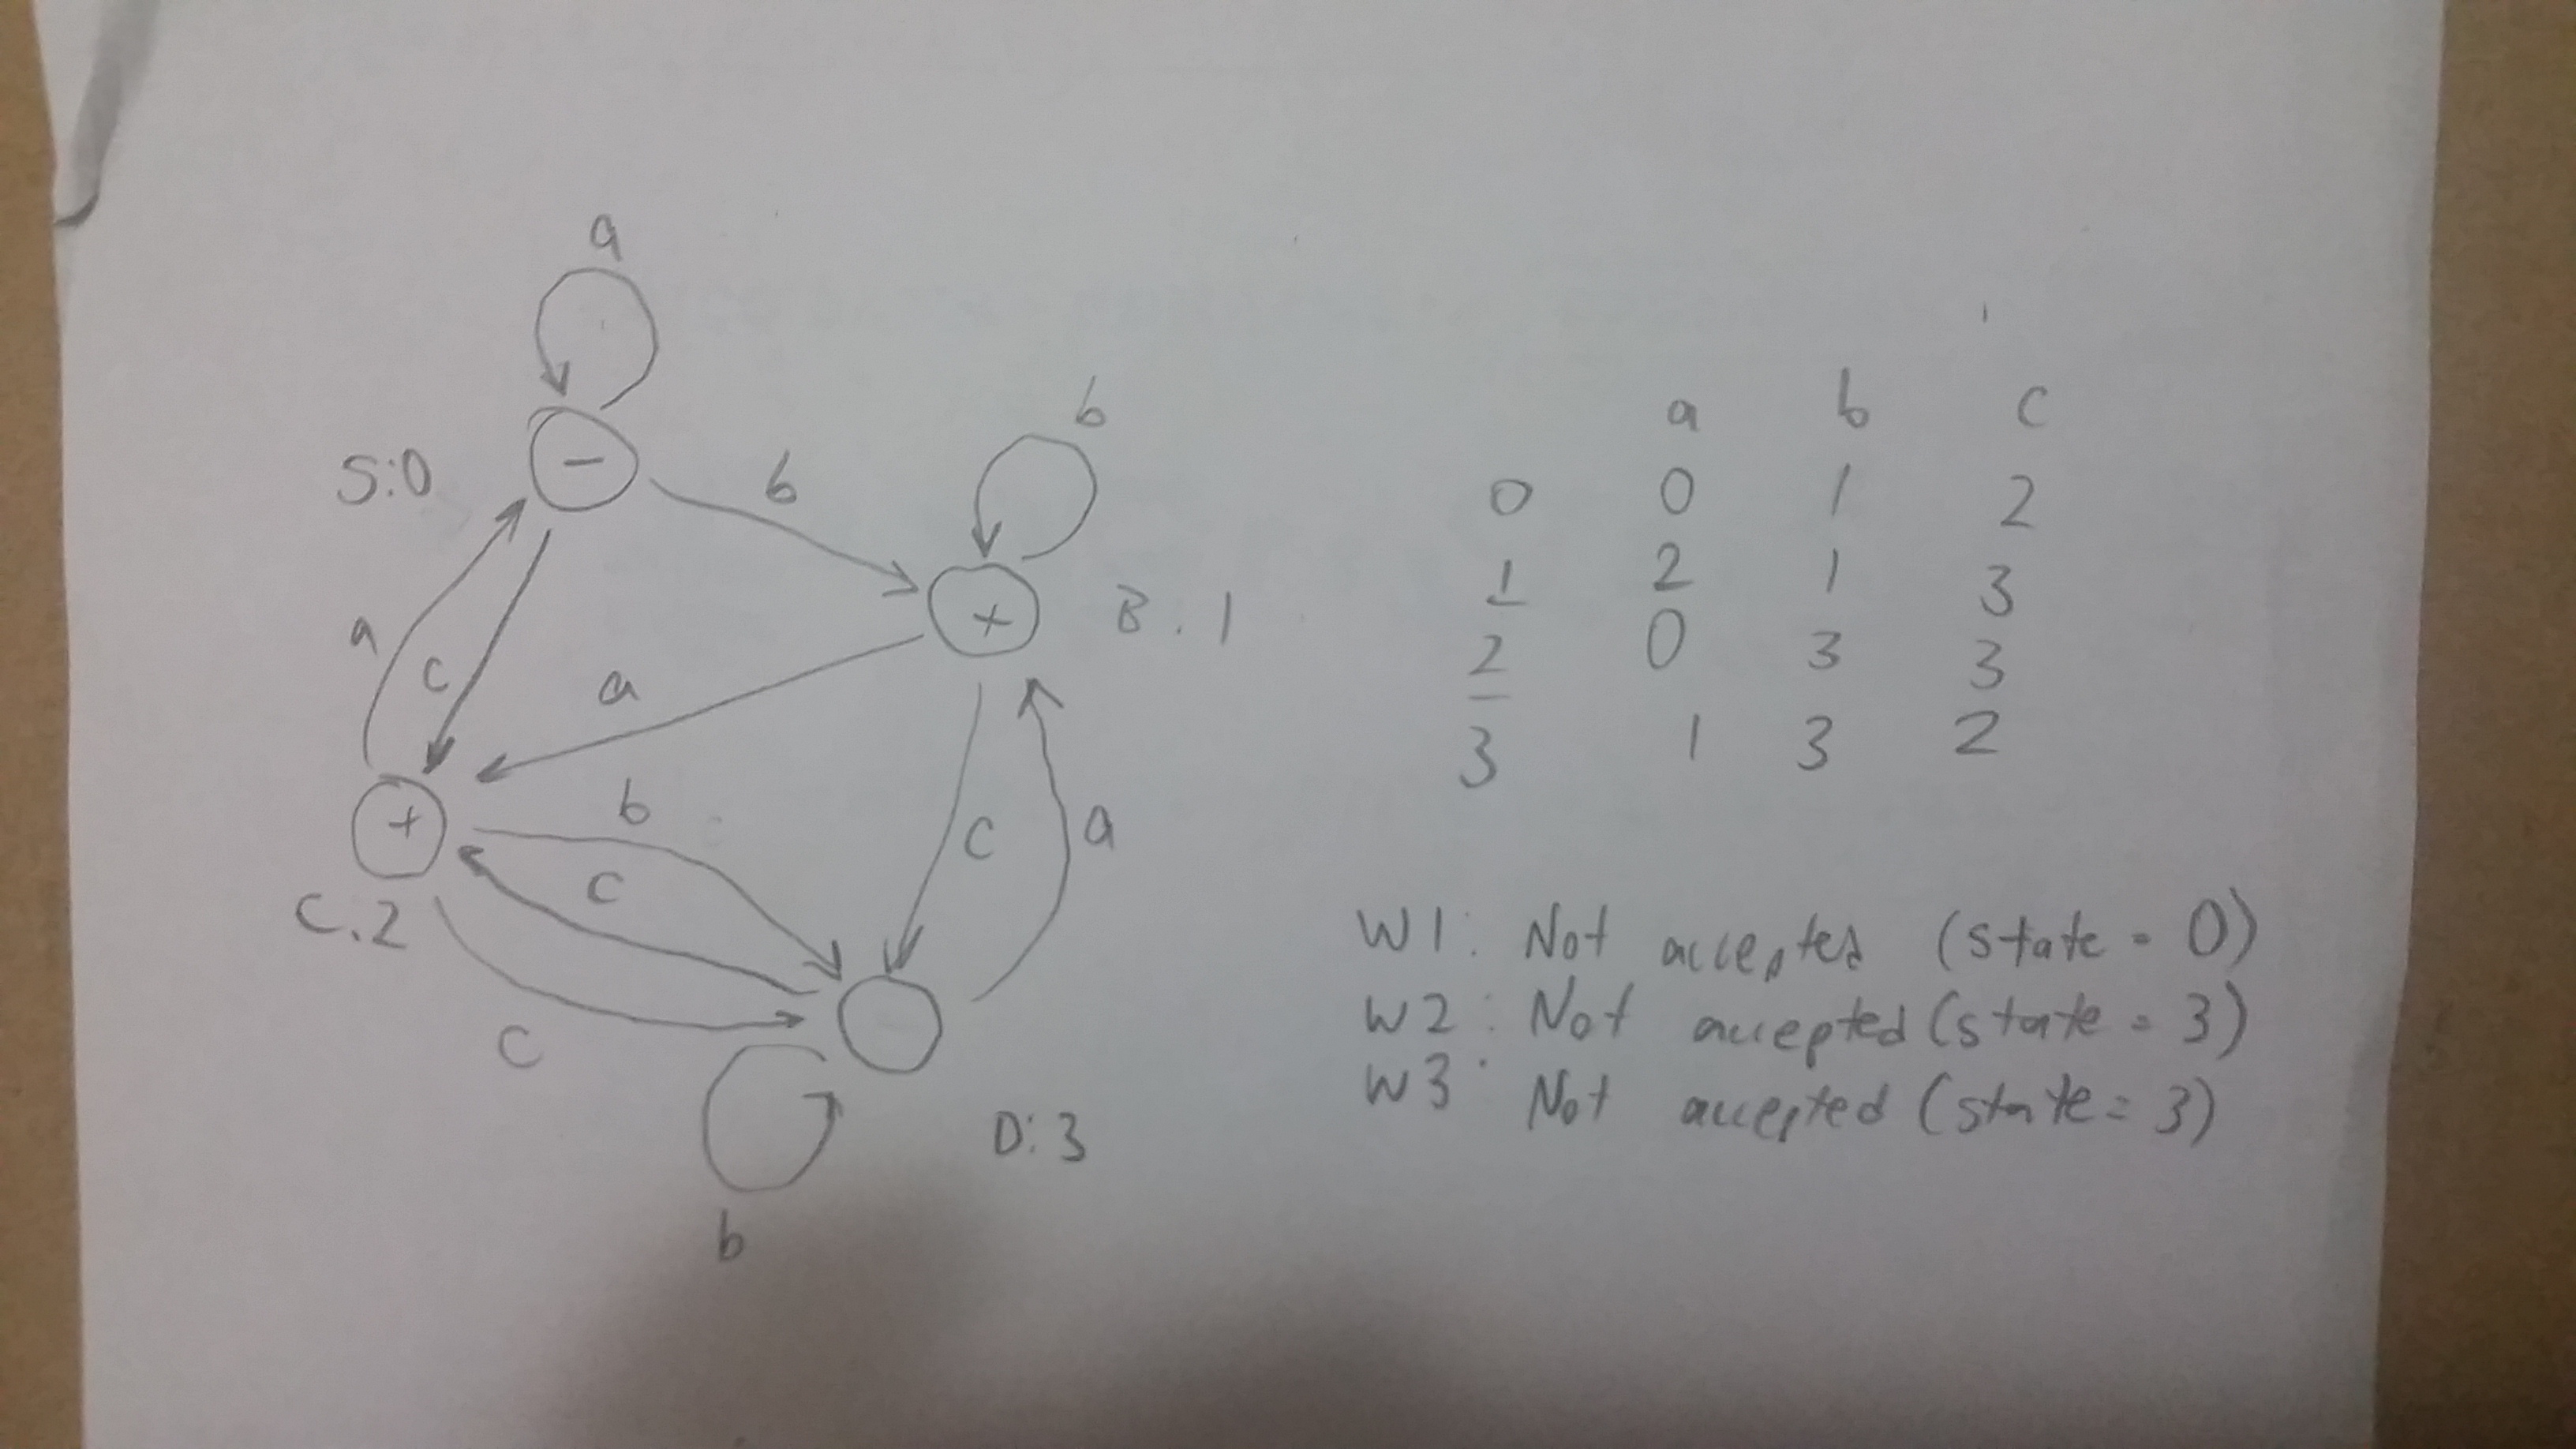 a
S:0
-
a
c
b
b
+
B:1
a
C:2
+
b
c
c
c
a
D:3
b
a b c
0 0 1 2
1 2 1 3
2 0 3 3
3 1 3 2
W1: Not accepted (state = 0)
W2: Not accepted (state = 3)
W3: Not accepted (state = 3)